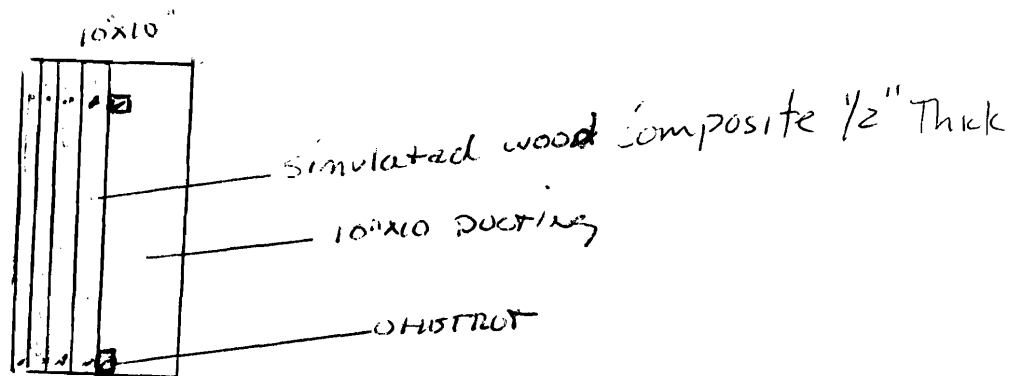 10"x10"
simulated wood composite 1/2" Thick
10"x10 DUCTING
UNISTRUT